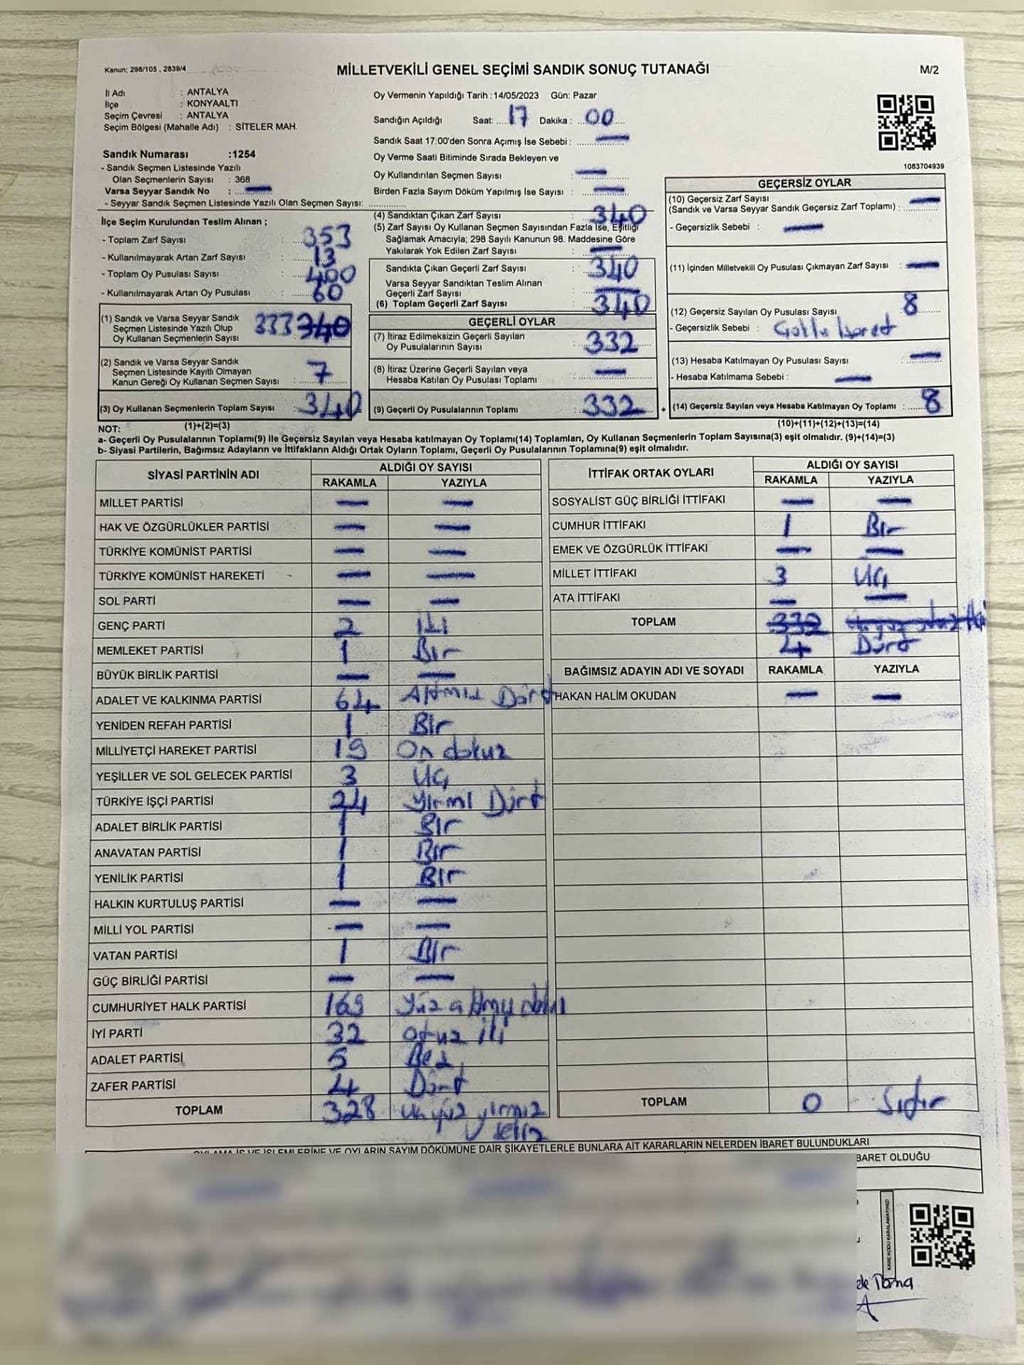 Kanun; 298/105 , 2839/4
MİLLETVEKİLİ GENEL SEÇİMİ SANDIK SONUÇ TUTANAĞI
M/2
İl Adı : ANTALYA
İlçe : KONYAALTI
Seçim Çevresi : ANTALYA
Seçim Bölgesi (Mahalle Adı) : SİTELER MAH.
Sandık Numarası :1254
- Sandık Seçmen Listesinde Yazılı
Olan Seçmenlerin Sayısı : 368
Varsa Seyyar Sandık No : —
- Seyyar Sandık Seçmen Listesinde Yazılı Olan Seçmen Sayısı:
Oy Vermenin Yapıldığı Tarih :14/05/2023 Gün: Pazar
Sandığın Açıldığı Saat: 17 Dakika : 00
Sandık Saat 17:00'den Sonra Açımış İse Sebebi : —
Oy Verme Saati Bitiminde Sırada Bekleyen ve
Oy Kullandırılan Seçmen Sayısı : —
Birden Fazla Sayım Döküm Yapılmış İse Sayısı : —
1083704939
İlçe Seçim Kurulundan Teslim Alınan ;
- Toplam Zarf Sayısı : 353
- Kullanılmayarak Artan Zarf Sayısı : 13
- Toplam Oy Pusulası Sayısı : 400
- Kullanılmayarak Artan Oy Pusulası : 60
(1) Sandık ve Varsa Seyyar Sandık
Seçmen Listesinde Yazılı Olup
Oy Kullanan Seçmenlerin Sayısı 333 340
(2) Sandık ve Varsa Seyyar Sandık
Seçmen Listesinde Kayıtlı Olmayan
Kanun Gereği Oy Kullanan Seçmen Sayısı : 7
(3) Oy Kullanan Seçmenlerin Toplam Sayısı : 340
(4) Sandıktan Çıkan Zarf Sayısı : 340
(5) Zarf Sayısı Oy Kullanan Seçmen Sayısından Fazla İse, Eşitliği
Sağlamak Amacıyla; 298 Sayılı Kanunun 98. Maddesine Göre
Yakılarak Yok Edilen Zarf Sayısı : —
Sandıkta Çıkan Geçerli Zarf Sayısı : 340
Varsa Seyyar Sandıktan Teslim Alınan
Geçerli Zarf Sayısı : —
(6) Toplam Geçerli Zarf Sayısı : 340
GEÇERLİ OYLAR
(7) İtiraz Edilmeksizin Geçerli Sayılan
Oy Pusulalarının Sayısı : 332
(8) İtiraz Üzerine Geçerli Sayılan veya
Hesaba Katılan Oy Pusulası Toplamı : —
(9) Geçerli Oy Pusulalarının Toplamı : 332
GEÇERSİZ OYLAR
(10) Geçersiz Zarf Sayısı
(Sandık ve Varsa Seyyar Sandık Geçersiz Zarf Toplamı) : —
- Geçersizlik Sebebi : —
(11) İçinden Milletvekili Oy Pusulası Çıkmayan Zarf Sayısı : —
(12) Geçersiz Sayılan Oy Pusulası Sayısı : 8
- Geçersizlik Sebebi :
(13) Hesaba Katılmayan Oy Pusulası Sayısı : —
- Hesaba Katılmama Sebebi : —
+ (14) Geçersiz Sayılan veya Hesaba Katılmayan Oy Toplamı : 8
NOT: (1)+(2)=(3)
(10)+(11)+(12)+(13)=(14)
a- Geçerli Oy Pusulalarının Toplamı(9) ile Geçersiz Sayılan veya Hesaba katılmayan Oy Toplamı(14) Toplamları, Oy Kullanan Seçmenlerin Toplam Sayısına(3) eşit olmalıdır. (9)+(14)=(3)
b- Siyasi Partilerin, Bağımsız Adayların ve İttifakların Aldığı Ortak Oyların Toplamı, Geçerli Oy Pusulalarının Toplamına(9) eşit olmalıdır.
SİYASİ PARTİNİN ADI ALDIĞI OY SAYISI
RAKAMLA YAZIYLA
MİLLET PARTİSİ — —
HAK VE ÖZGÜRLÜKLER PARTİSİ — —
TÜRKİYE KOMÜNİST PARTİSİ — —
TÜRKİYE KOMÜNİST HAREKETİ — —
SOL PARTİ — —
GENÇ PARTİ 2 İki
MEMLEKET PARTİSİ 1 Bir
BÜYÜK BİRLİK PARTİSİ — —
ADALET VE KALKINMA PARTİSİ 64 Altmış Dört
YENİDEN REFAH PARTİSİ 1 Bir
MİLLİYETÇİ HAREKET PARTİSİ 19 On dokuz
YEŞİLLER VE SOL GELECEK PARTİSİ 3 Üç
TÜRKİYE İŞÇİ PARTİSİ 24 Yirmi Dört
ADALET BİRLİK PARTİSİ 1 Bir
ANAVATAN PARTİSİ 1 Bir
YENİLİK PARTİSİ 1 Bir
HALKIN KURTULUŞ PARTİSİ — —
MİLLİ YOL PARTİSİ — —
VATAN PARTİSİ 1 Bir
GÜÇ BİRLİĞİ PARTİSİ — —
CUMHURİYET HALK PARTİSİ 169 Yüz altmış dokuz
İYİ PARTİ 32 Otuz iki
ADALET PARTİSİ 5 Beş
ZAFER PARTİSİ 4 Dört
TOPLAM 328 Üç yüz yirmi
sekiz
İTTİFAK ORTAK OYLARI ALDIĞI OY SAYISI
RAKAMLA YAZIYLA
SOSYALİST GÜÇ BİRLİĞİ İTTİFAKI — —
CUMHUR İTTİFAKI 1 Bir
EMEK VE ÖZGÜRLÜK İTTİFAKI — —
MİLLET İTTİFAKI 3 Üç
ATA İTTİFAKI — —
TOPLAM 332
4 Dört
BAĞIMSIZ ADAYIN ADI VE SOYADI RAKAMLA YAZIYLA
HAKAN HALİM OKUDAN — —
TOPLAM 0 Sıfır
OYLAMA İŞ VE İŞLEMLERİNE VE OYLARIN SAYIM DÖKÜMÜNE DAİR ŞİKAYETLERLE BUNLARA AİT KARARLARIN NELERDEN İBARET BULUNDUKLARI
BARET OLDUĞU
KARE KODU KARALAMAYINIZ!